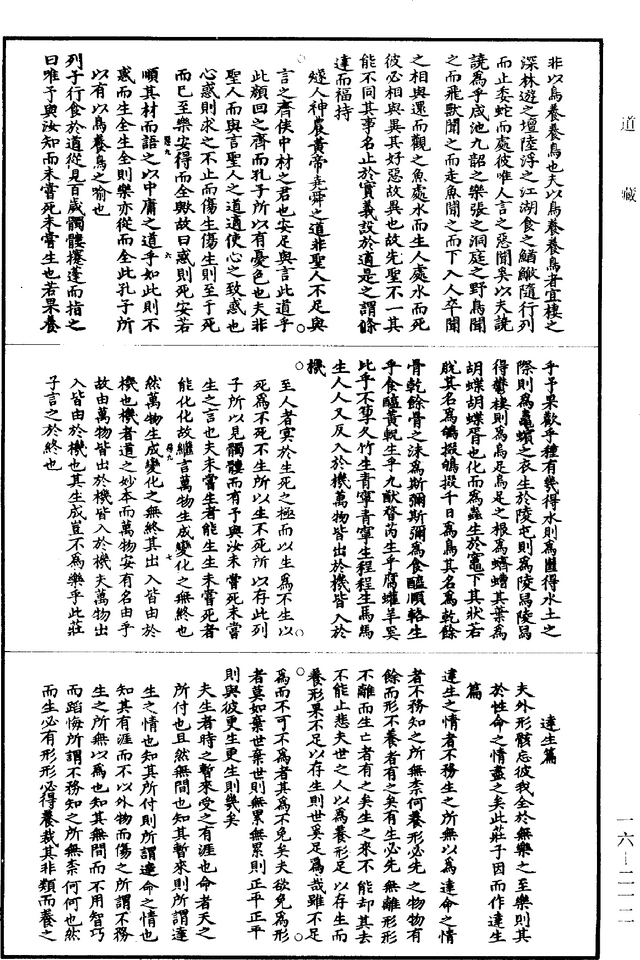 道藏
非以鳥養養鳥也夫以鳥養養鳥者宜棲之
深林遊之壇陸浮之江湖食之鰌鰷隨行列
而止委蛇而處彼唯人言之惡聞奚以夫譊
譊為乎咸池九韶之樂張之洞庭之野鳥聞
之而飛獸聞之而走魚聞之而下入人卒聞
之相與還而觀之魚處水而生人處水而死
彼必相與異其好惡故異也故先聖不一其
能不同其事名止於實義設於適是之謂條
達而福持
燧人神農黃帝堯舜之道非聖人不足與
言之齊侯中材之君也安足與言此道乎
此顏回之齊而孔子所以有憂色也夫非
聖人而與言聖人之道適使心之致惑也
心惑則求之不止而傷生傷生則至于死
而已至樂安得而全歟故曰惑則死安若
順其材而語之以中庸之道乎如此則不
惑而生全生全則樂亦從而全此孔子所
以有以鳥養鳥之喻也
列子行食於道從見百歲髑髏攓蓬而指之
曰唯予與汝知而未嘗死未嘗生也若果養
乎予果歡乎種有幾得水則為㡭得水土之
際則為鼃蠙之衣生於陵屯則為陵舄陵舄
得鬱棲則為烏足烏足之根為蠐螬其葉為
胡蝶胡蝶胥也化而為蟲生於竈下其狀若
脫其名為鴝掇鴝掇千日為鳥其名為乾餘
骨乾餘骨之沫為斯彌斯彌為食醯頤輅生
乎食醯黃軦生乎九猷瞀芮生乎腐蠸羊奚
比乎不箰久竹生青寧青寧生程程生馬馬
生人人又反入於機萬物皆出於機皆入於
機
至人者冥於生死之極而以生為不生以
死為不死不生所以生不死所以存此列
子所以見髑髏而有予與汝未嘗死未嘗
生之言也夫未嘗生者能生生未嘗死者
能化化故繼言萬物生成變化之無終也
然萬物生成變化之無終其出入皆由於
機也機者道之妙本而萬物安有名由乎
故由萬物皆出於機皆入於機夫萬物出
入皆由於機也其生成豈不為樂乎此莊
子言之於終也
達生篇
夫外形骸忘彼我全於無樂之至樂則其
於性命之情盡之矣此莊子因而作達生
篇
達生之情者不務生之所無以為達命之情
者不務知之所無奈何養形必先之物物有
餘而形不養者有之矣有生必先無離形形
不離而生亡者有之矣生之來不能却其去
不能止悲夫世之人以為養形足以存生而
養形果不足以存生則世奚足為哉雖不足
為而不可不為者其為不免矣夫欲免為形
者莫如棄世棄世則無累無累則正平正平
則與彼更生更生則幾矣
夫生者時之暫來受之有涯也命者天之
所付也且然無間也知其暫來則所謂達
生之情也知其所付則所謂達命之情也
知其有涯而不以外物而傷之所謂不務
生之所無以為也知其無間而不用智巧
而蹈悔所謂不務知之所無奈何何也然
而生必有形形必得養裁其非類而養之
一六—二一二